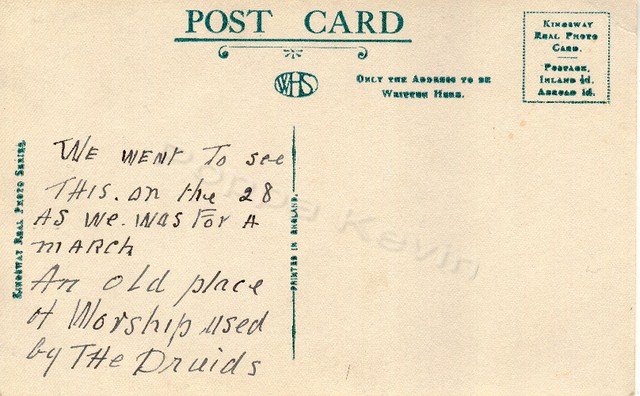 POST CARD
WHS
ONLY THE ADDRESS TO BE
WRITTEN HERE.
KINGSWAY
REAL PHOTO
CARD.
POSTAGE.
INLAND ½d.
ABROAD 1d.
KINGSWAY REAL PHOTO SERIES.
WE WENT TO see
THIS. on the 28
AS We. WAS FOR A
MARCH
An old place
of Worship used
by THe Druids
PRINTED IN ENGLAND.
Poppa Kevin